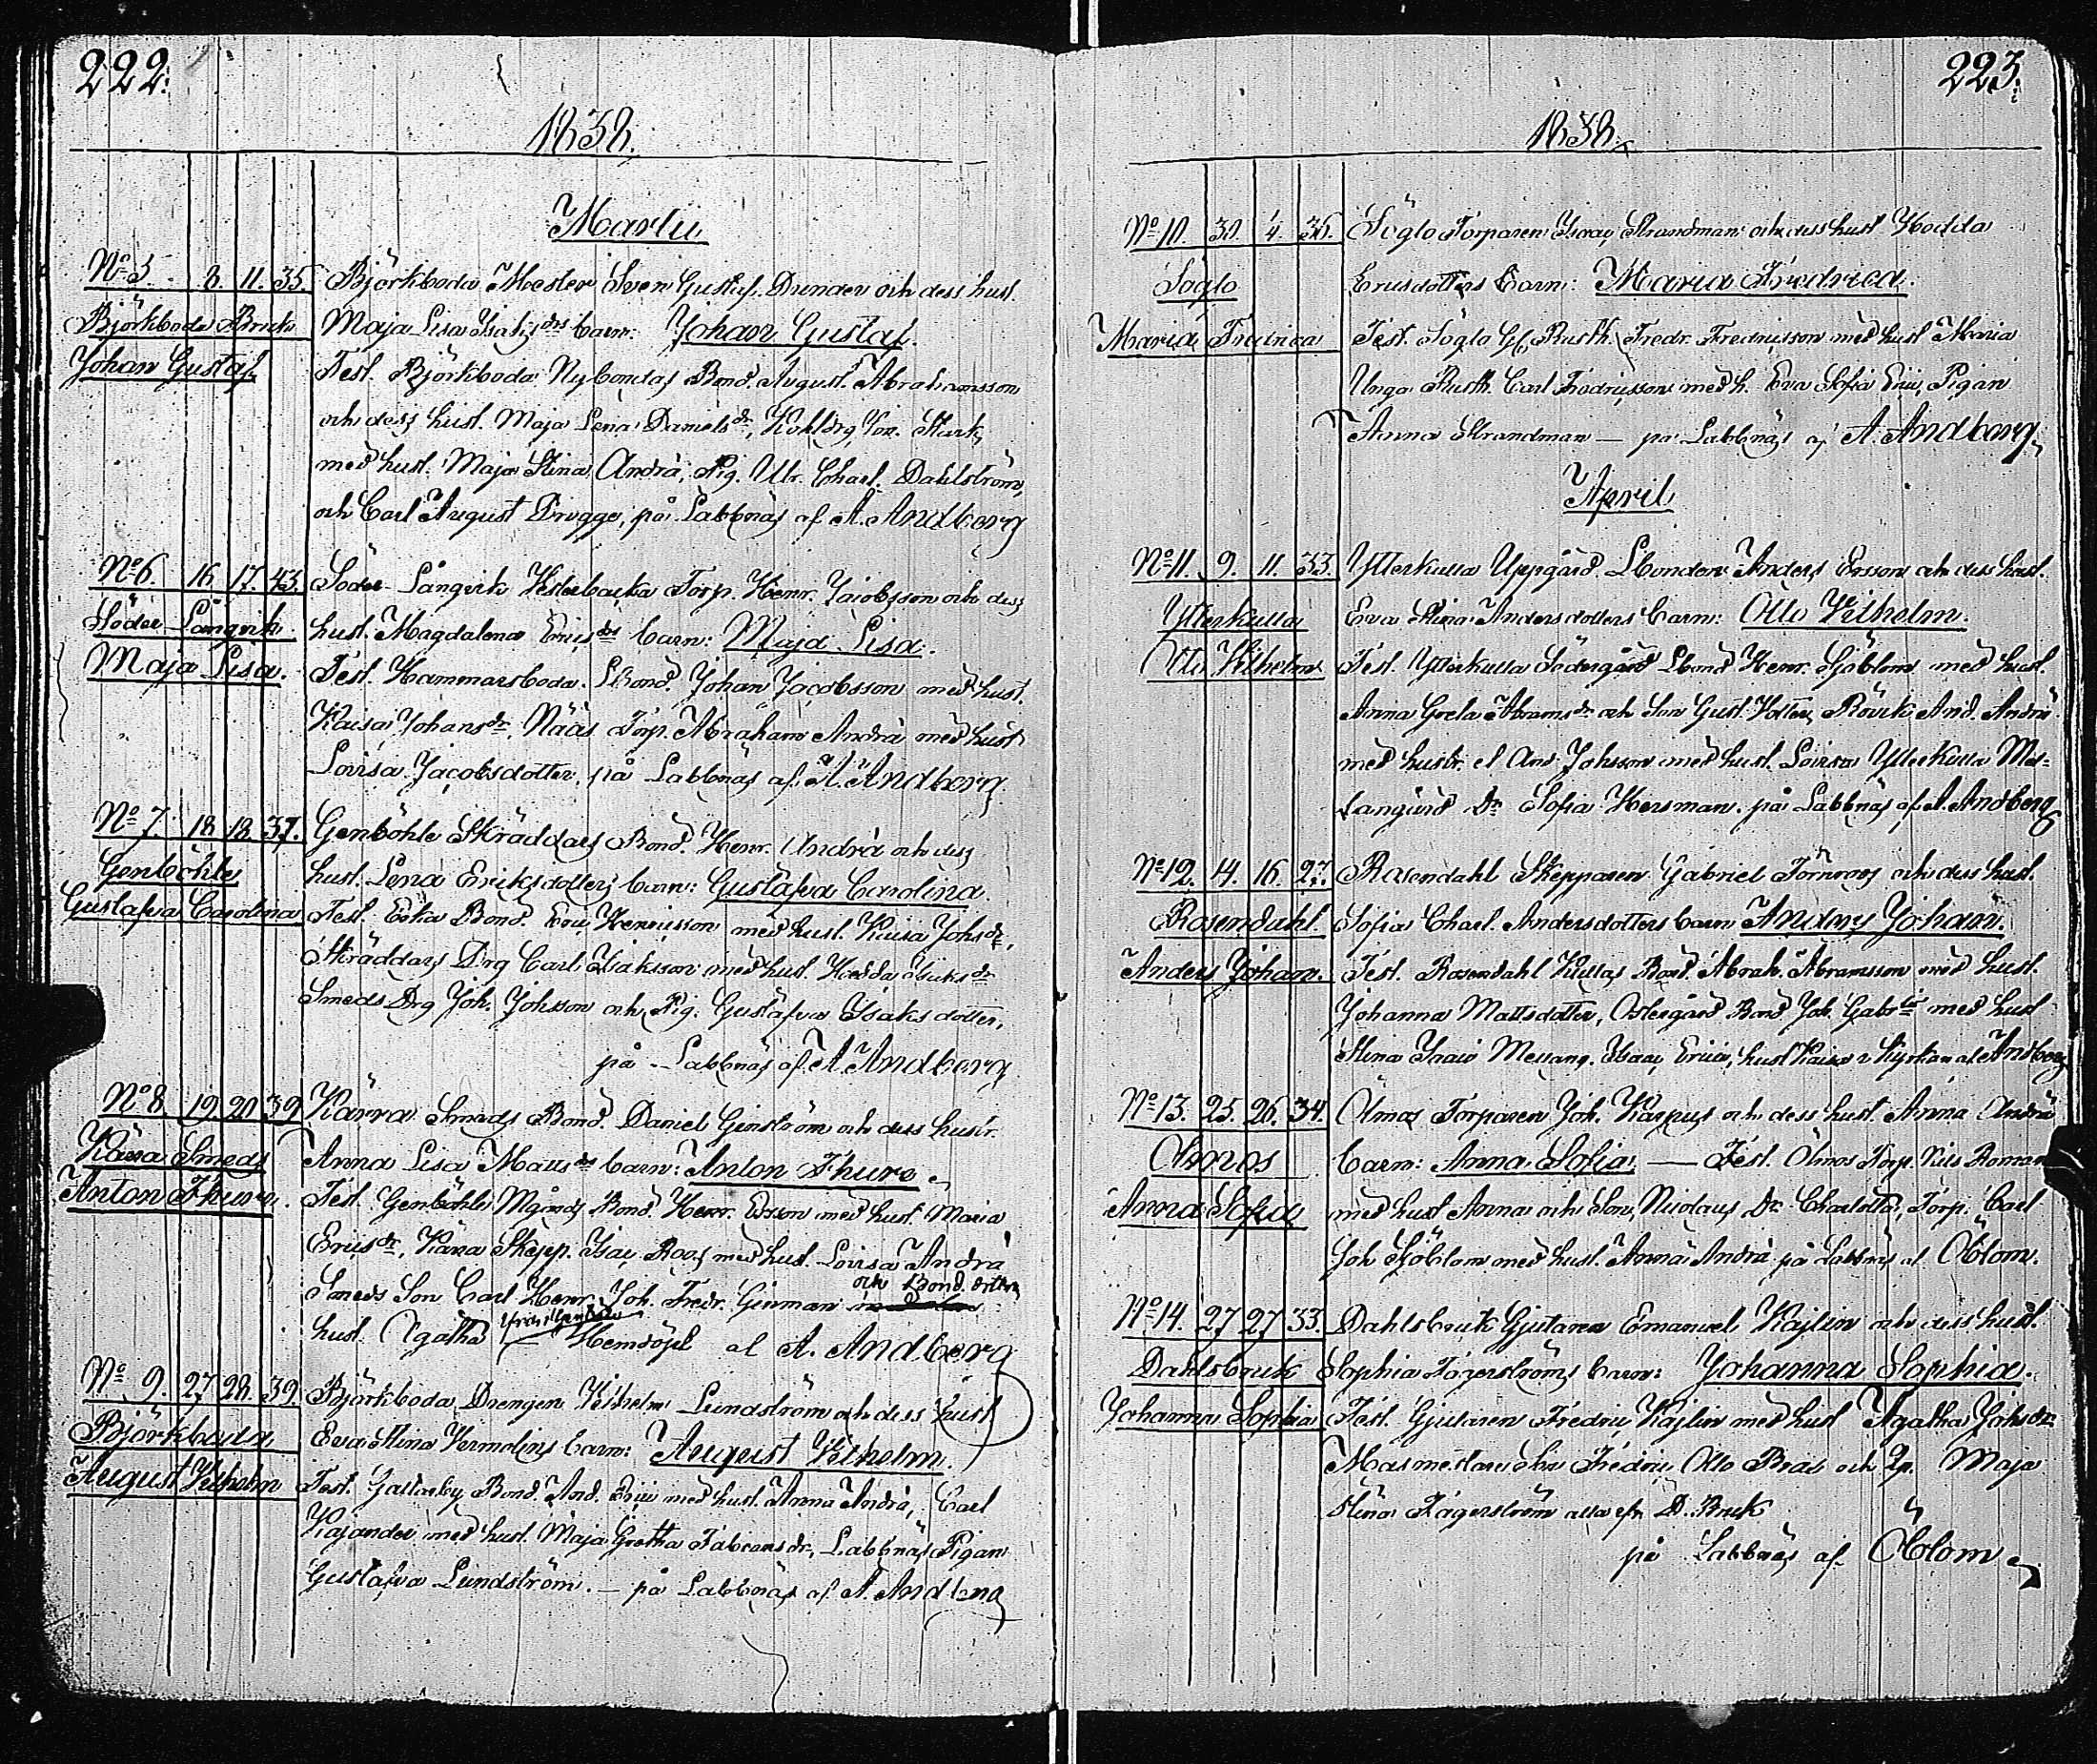 222.
1838.
Martii
No 5. 8. 11. 35. Björkboda Mästar Sven Gustaf Dunder och dess hust.
Björkboda Bruk Maja Lisa barn: Johan Gustaf.
Johan Gustaf Test. Björkboda Nybondas Bond. August Abrahamsson
och dess hust. Maja Lena Daniels dr, Joh. Stark,
med hust. Maja Stina Andrä, Pig. Ulr. Charl. Dahlström,
och Carl August Brygge, på Labbnäs af A. Andberg
No 6. 16. 17. 43. Söder Långvik Vesterbacka Torp. Henr. Jacobsson och dess
Söder Långvik hust. Magdalena Erics dr barn: Maja Lisa.
Maja Lisa. Test. Hammarsboda Bond. Johan Jacobsson med hust.
Kaisa Johans dr, Nääs Torp. Abraham Andrä med hust
Lovisa Jacobsdotter, på Labbnäs af A. Andberg.
No 7. 18. 18. 37. Genböhle Skräddars Bond. Henr. Andrä och dess
Genböhle hust. Lena Eriksdotters barn: Gustafva Carolina.
Gustafva Carolina Test. Bond. Eric Henricsson med hust. Kaisa Johs dr,
Skräddars Drg Carl Isaksson med hust. Hedda dr
Smeds Drg Joh. Johsson och Pig. Gustafva Isaksdotter,
på Labbnäs af A. Andberg
No 8. 19. 20. 39. Kärra Smeds Bond. Daniel Genström och dess hustr.
Kärra Smeds Anna Lisa Matts dr barn: Anton Thure.
Anton Thure. Test. Genböhle Mågas Bond. Henr. Ersson med hust. Maria
Erics dr, Kärra Skepp. Isac Roos med hust. Lovisa Andrä
och Bond.
Smeds Son Carl Henr. Joh. Fredr. Genman
hust. Agatha Hemdöpt af A. Andberg
No 9. 27. 28. 39. Björkboda Drengen Vilhelm Lundström och dess hust
Björkboda Eva Stina Vermelins barn: August Vilhelm.
August Vilhelm Test. Galtarby Bond. And. Eric med hust. Anna Andrä, Carl
Kajander med hust. Maja Gretha Fabians dr, Labbnäs Pigan
Gustafva Lundström. — på Labbnäs af A. Andberg
223.
1838.
No 10. 30. 4. 36. Söglo Torparen Isaac Strandman och dess hust Hedda
Söglo Ericsdotters barn: Maria Fredrica.
Maria Fredrica Test. Söglo Rusth. Fredr. Fredricsson med hust Maria
Unga Rusth. Carl Fredricsson med h. Eva Sofia Eric, Pigan
Anna Strandman — på Labbnäs af A. Andberg,
April
No 11. 9. 11. 33. Ytterkulla Uppgård Bonden Anders Ersson och dess hust.
Ytterkulla Eva Stina Andersdotters barn: Otto Vilhelm.
Otto Vilhelm Test. Ytterkulla Södergård Bond Henr. Sjöblom med hust.
Anna Greta Abrams dr och Son Gust. Rövik And. Andrä
med hustr. And. Johsson med hust. Lovisa Ytterkulla Mel-
langård Dr Sofia Hersman. på Labbnäs af A. Andberg
No 12. 14. 16. 27. Rosendahl Skepparen Gabriel Törnroos och dess hust.
Rosendahl. Sofia Charl. Andersdotters barn Anders Johan.
Anders Johan. Test. Rosendahl Kullas Bond. Abrah. Abramsson med hust.
Johanna Mattsdotter, Östergård Bond Joh. Gabr med hust
Stina Isaac Isaac Erics hust Kaisa i Kyrkan af Andberg
No 13. 25. 26. 34. Ölmos Torparen Joh. Karpus och dess hust Anna Andrä
Ölmos barn: Anna Sofia. — Test. Ölmos Torp. Nils Roman
Anna Sofia med hust Anna och Son Nicolaus Dr Charlotta, Torp. Carl
Joh Sjöblom med hust. Anna Andrä på Labbnäs af Öblom.
No 14. 27. 27. 33. Dahlsbruk Gjutaren Emanuel Kajlin och dess hust.
Dahlsbruk Sophia Fagerströms barn: Johanna Sophia.
Johanna Sophia Test. Gjutaren Fredric Kajlin med hust Agatha Johsdr
Masmästare Son Fredric Otto och Maja
Stina Fagerström alla fr. D. Bruk
på Labbnäs af Öblom